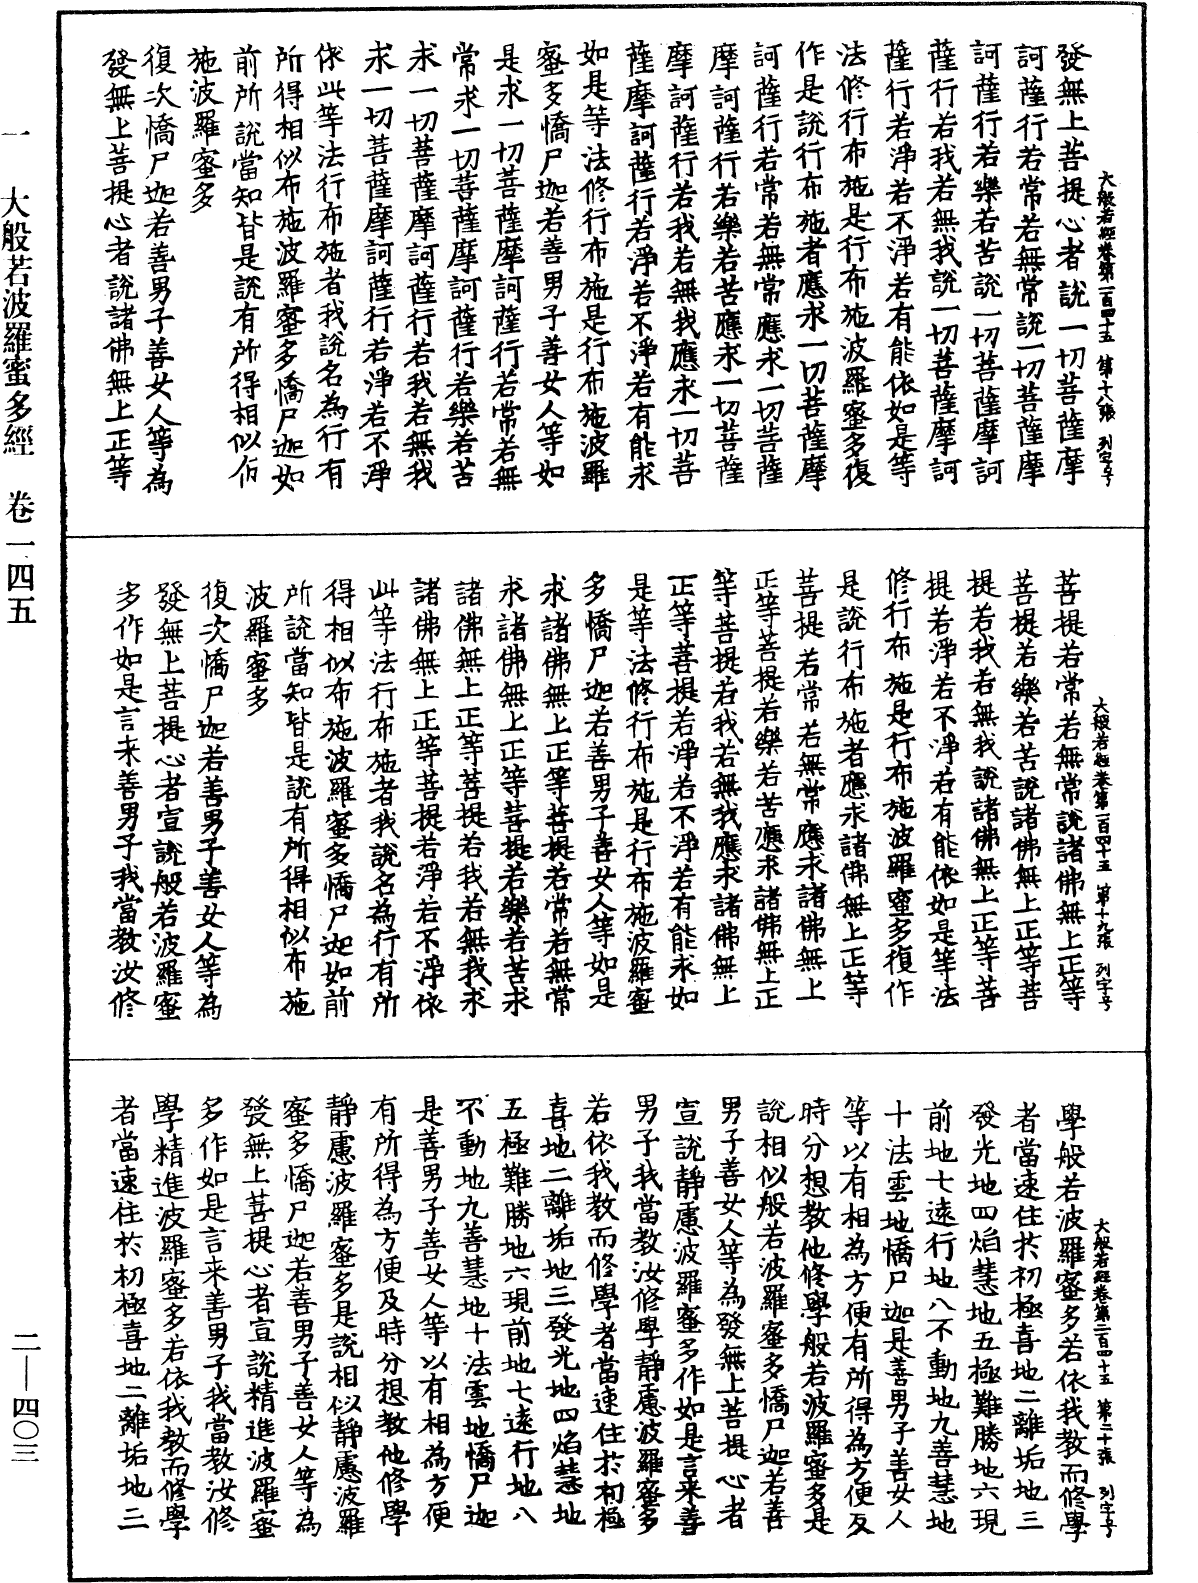 大般若經卷第一百四十五 第十八張 列字号
發無上菩提心者說一切菩薩摩
訶薩行若常若無常說一切菩薩摩
訶薩行若樂若苦說一切菩薩摩訶
薩行若我若無我說一切菩薩摩訶
薩行若淨若不淨若有能依如是等
法修行布施是行布施波羅蜜多復
作是說行布施者應求一切菩薩摩
訶薩行若常若無常應求一切菩薩
摩訶薩行若樂若苦應求一切菩薩
摩訶薩行若我若無我應求一切菩
薩摩訶薩行若淨若不淨若有能求
如是等法修行布施是行布施波羅
蜜多憍尸迦若善男子善女人等如
是求一切菩薩摩訶薩行若常若無
常求一切菩薩摩訶薩行若樂若苦
求一切菩薩摩訶薩行若我若無我
求一切菩薩摩訶薩行若淨若不淨
依此等法行布施者我說名為行有
所得相似布施波羅蜜多憍尸迦如
前所說當知皆是說有所得相似布
施波羅蜜多
復次憍尸迦若善男子善女人等為
發無上菩提心者說諸佛無上正等
大般若經卷第一百四十五 第十九張 列字号
菩提若常若無常說諸佛無上正等
菩提若樂若苦說諸佛無上正等菩
提若我若無我說諸佛無上正等菩
提若淨若不淨若有能依如是等法
修行布施是行布施波羅蜜多復作
是說行布施者應求諸佛無上正等
菩提若常若無常應求諸佛無上
正等菩提若樂若苦應求諸佛無上正
等菩提若我若無我應求諸佛無上
正等菩提若淨若不淨若有能求如
是等法修行布施是行布施波羅蜜
多憍尸迦若善男子善女人等如是
求諸佛無上正等菩提若常若無常
求諸佛無上正等菩提若樂若苦求
諸佛無上正等菩提若我若無我求
諸佛無上正等菩提若淨若不淨依
此等法行布施者我說名為行有所
得相似布施波羅蜜多憍尸迦如前
所說當知皆是說有所得相似布施
波羅蜜多
復次憍尸迦若善男子善女人等為
發無上菩提心者宣說般若波羅蜜
多作如是言來善男子我當教汝修
大般若經卷第一百四十五 第二十張 列字号
學般若波羅蜜多若依我教而修學
者當速住於初極喜地二離垢地三
發光地四焰慧地五極難勝地六現
前地七遠行地八不動地九善慧地
十法雲地憍尸迦是善男子善女人
等以有相為方便有所得為方便及
時分想教他修學般若波羅蜜多是
說相似般若波羅蜜多憍尸迦若善
男子善女人等為發無上菩提心者
宣說靜慮波羅蜜多作如是言來善
男子我當教汝修學靜慮波羅蜜多
若依我教而修學者當速住於初極
喜地二離垢地三發光地四焰慧地
五極難勝地六現前地七遠行地八
不動地九善慧地十法雲地憍尸迦
是善男子善女人等以有相為方便
有所得為方便及時分想教他修學
靜慮波羅蜜多是說相似靜慮波羅
蜜多憍尸迦若善男子善女人等為
發無上菩提心者宣說精進波羅蜜
多作如是言來善男子我當教汝修
學精進波羅蜜多若依我教而修學
者當速住於初極喜地二離垢地三
一 大般若波羅蜜多經 卷一四五
二—四〇三